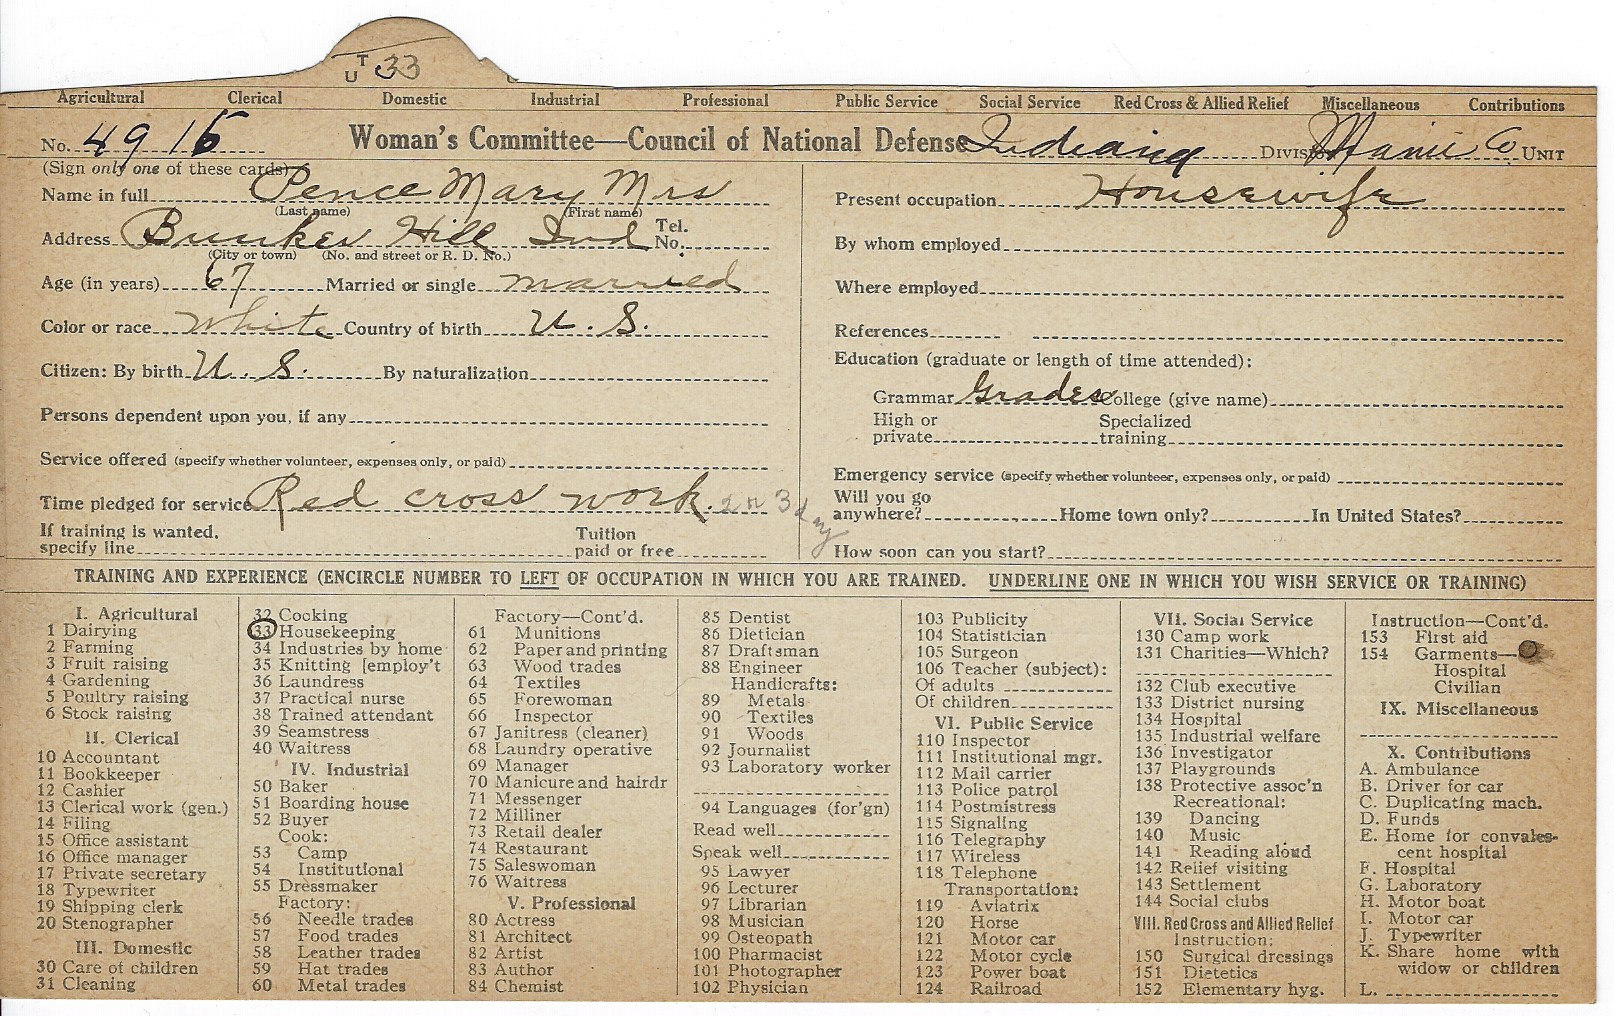 T
U 33
Agricultural Clerical Domestic Industrial Professional Public Service Social Service Red Cross & Allied Relief Miscellaneous Contributions
No. 4915 Woman's Committee—Council of National Defense Indiana DIVISION Miami Co UNIT
(Sign only one of these cards)
Name in full Pence Mary Mrs
(Last name) (First name)
Address Bunker Hill Ind Tel. No.
(City or town) (No. and street or R. D. No.)
Age (in years) 67 Married or single married
Color or race White Country of birth U. S.
Citizen: By birth U. S. By naturalization
Persons dependent upon you, if any
Service offered (specify whether volunteer, expenses only, or paid)
Time pledged for service Red cross work. 2 or 3 day
If training is wanted, specify line
Tuition paid or free
Present occupation Housewife
By whom employed
Where employed
References
Education (graduate or length of time attended):
Grammar Grades College (give name)
High or private
Specialized training
Emergency service (specify whether volunteer, expenses only, or paid)
Will you go anywhere? Home town only? In United States?
How soon can you start?
TRAINING AND EXPERIENCE (ENCIRCLE NUMBER TO LEFT OF OCCUPATION IN WHICH YOU ARE TRAINED. UNDERLINE ONE IN WHICH YOU WISH SERVICE OR TRAINING)
I. Agricultural
1 Dairying
2 Farming
3 Fruit raising
4 Gardening
5 Poultry raising
6 Stock raising
II. Clerical
10 Accountant
11 Bookkeeper
12 Cashier
13 Clerical work (gen.)
14 Filing
15 Office assistant
16 Office manager
17 Private secretary
18 Typewriter
19 Shipping clerk
20 Stenographer
III. Domestic
30 Care of children
31 Cleaning
32 Cooking
33 Housekeeping
34 Industries by home
35 Knitting [employ't
36 Laundress
37 Practical nurse
38 Trained attendant
39 Seamstress
40 Waitress
IV. Industrial
50 Baker
51 Boarding house
52 Buyer
Cook:
53 Camp
54 Institutional
55 Dressmaker
Factory:
56 Needle trades
57 Food trades
58 Leather trades
59 Hat trades
60 Metal trades
Factory—Cont'd.
61 Munitions
62 Paper and printing
63 Wood trades
64 Textiles
65 Forewoman
66 Inspector
67 Janitress (cleaner)
68 Laundry operative
69 Manager
70 Manicure and hairdr
71 Messenger
72 Milliner
73 Retail dealer
74 Restaurant
75 Saleswoman
76 Waitress
V. Professional
80 Actress
81 Architect
82 Artist
83 Author
84 Chemist
85 Dentist
86 Dietician
87 Draftsman
88 Engineer
Handicrafts:
89 Metals
90 Textiles
91 Woods
92 Journalist
93 Laboratory worker
94 Languages (for'gn)
Read well
Speak well
95 Lawyer
96 Lecturer
97 Librarian
98 Musician
99 Osteopath
100 Pharmacist
101 Photographer
102 Physician
103 Publicity
104 Statistician
105 Surgeon
106 Teacher (subject):
Of adults
Of children
VI. Public Service
110 Inspector
111 Institutional mgr.
112 Mail carrier
113 Police patrol
114 Postmistress
115 Signaling
116 Telegraphy
117 Wireless
118 Telephone
Transportation:
119 Aviatrix
120 Horse
121 Motor car
122 Motor cycle
123 Power boat
124 Railroad
VII. Social Service
130 Camp work
131 Charities—Which?
132 Club executive
133 District nursing
134 Hospital
135 Industrial welfare
136 Investigator
137 Playgrounds
138 Protective assoc'n
Recreational:
139 Dancing
140 Music
141 Reading aloud
142 Relief visiting
143 Settlement
144 Social clubs
VIII. Red Cross and Allied Relief
Instruction:
150 Surgical dressings
151 Dietetics
152 Elementary hyg.
Instruction—Cont'd.
153 First aid
154 Garments—
Hospital
Civilian
IX. Miscellaneous
X. Contributions
A. Ambulance
B. Driver for car
C. Duplicating mach.
D. Funds
E. Home for convales-
cent hospital
F. Hospital
G. Laboratory
H. Motor boat
I. Motor car
J. Typewriter
K. Share home with
widow or children
L.